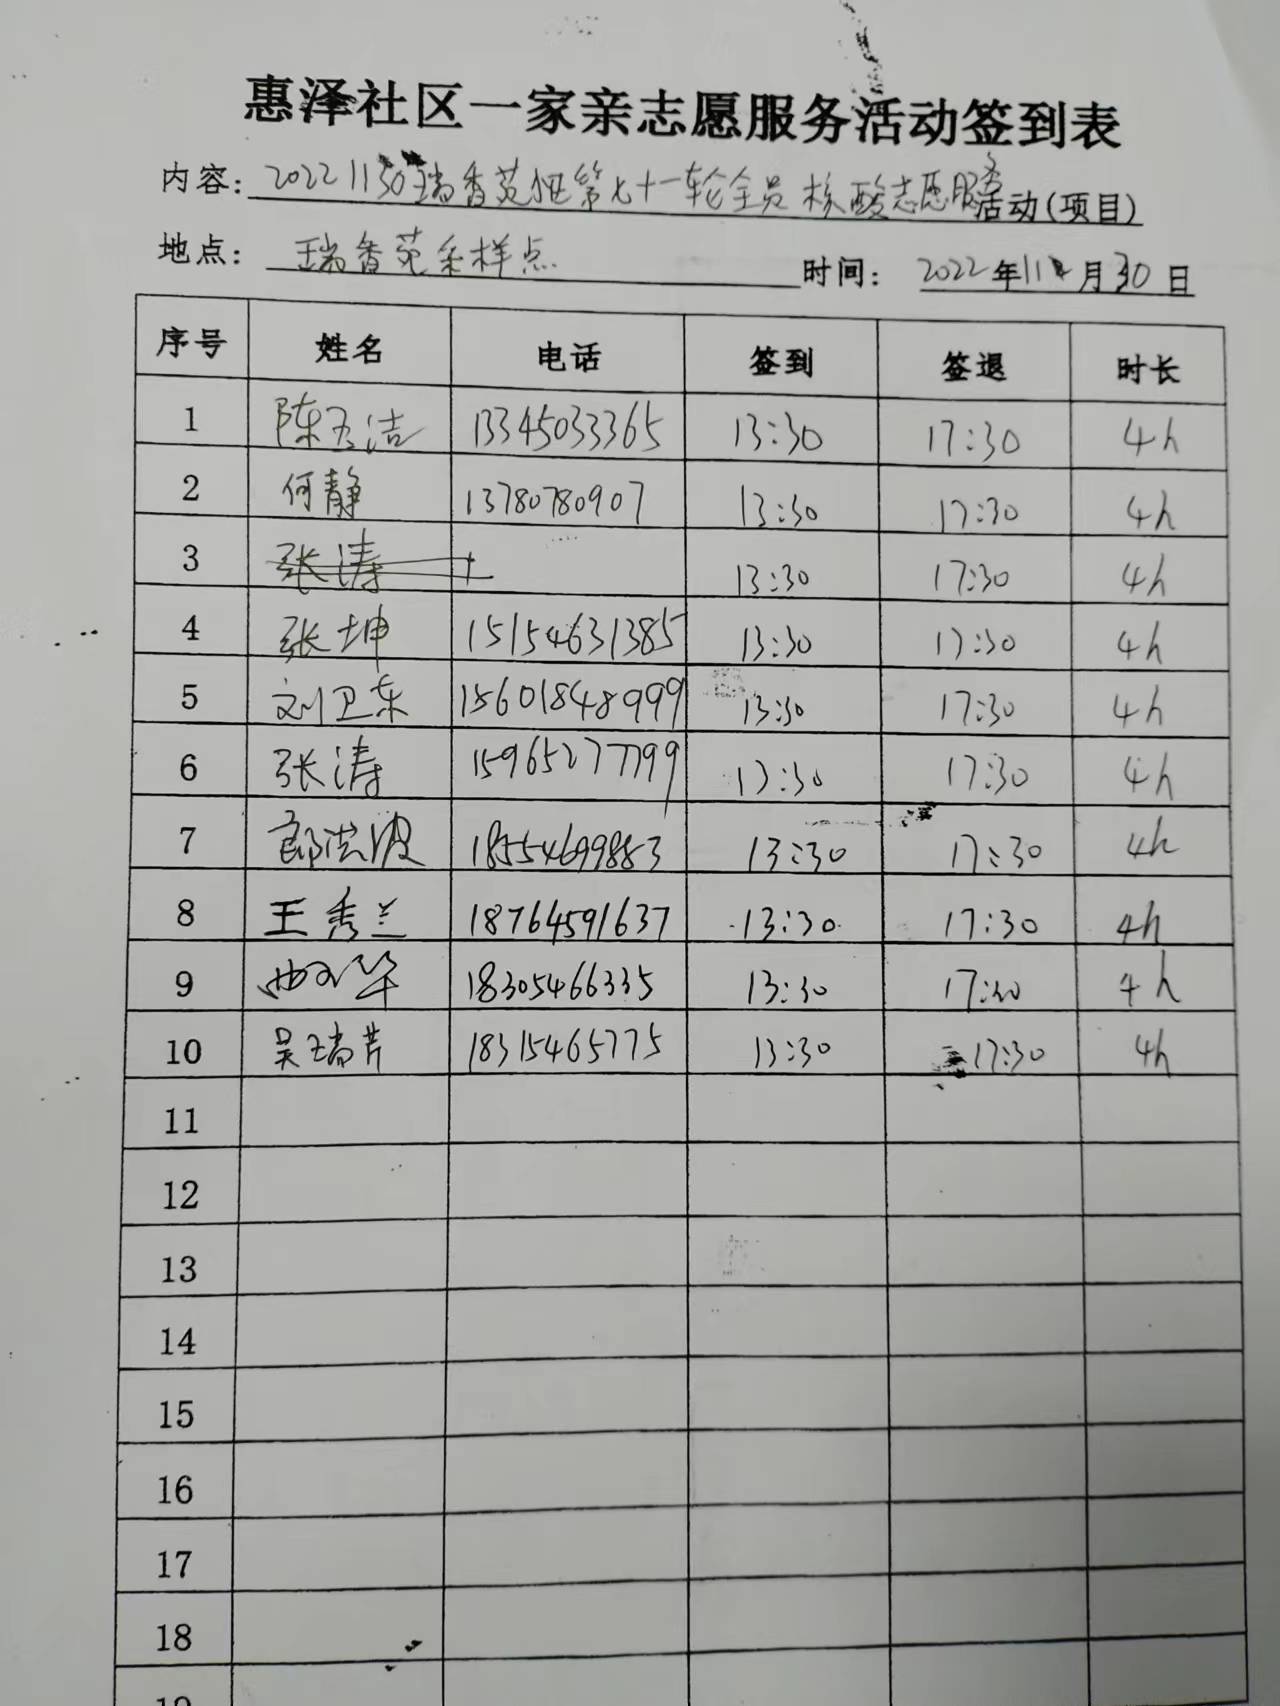 惠泽社区一家亲志愿服务活动签到表
内容：20221130瑞香苑社区第七十一轮全员核酸志愿服务活动(项目)
地点：瑞香苑采样点 时间：2022年11月30日
序号 姓名 电话 签到 签退 时长
1 陈玉洁 13345033365 13:30 17:30 4h
2 何静 13780780907 13:30 17:30 4h
3 张涛 13:30 17:30 4h
4 张坤 15154631385 13:30 17:30 4h
5 刘卫东 15601848999 13:30 17:30 4h
6 张涛 15965277799 13:30 17:30 4h
7 郎洪波 18554699883 13:30 17:30 4h
8 王秀兰 18764591637 13:30 17:30 4h
9 18305466335 13:30 17:30 4h
10 吴瑞芹 18315465775 13:30 17:30 4h
11
12
13
14
15
16
17
18
19